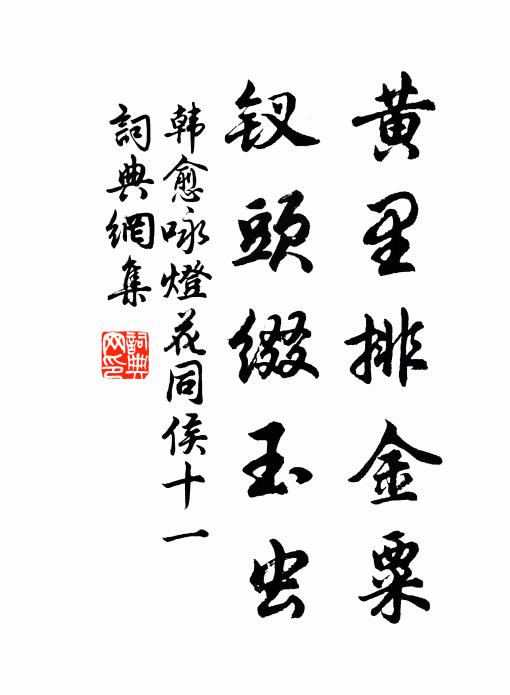 黄里排金粟
钗頭缀玉虫
韩愈咏燈花同侯十一
詞典網集
詞典
网印